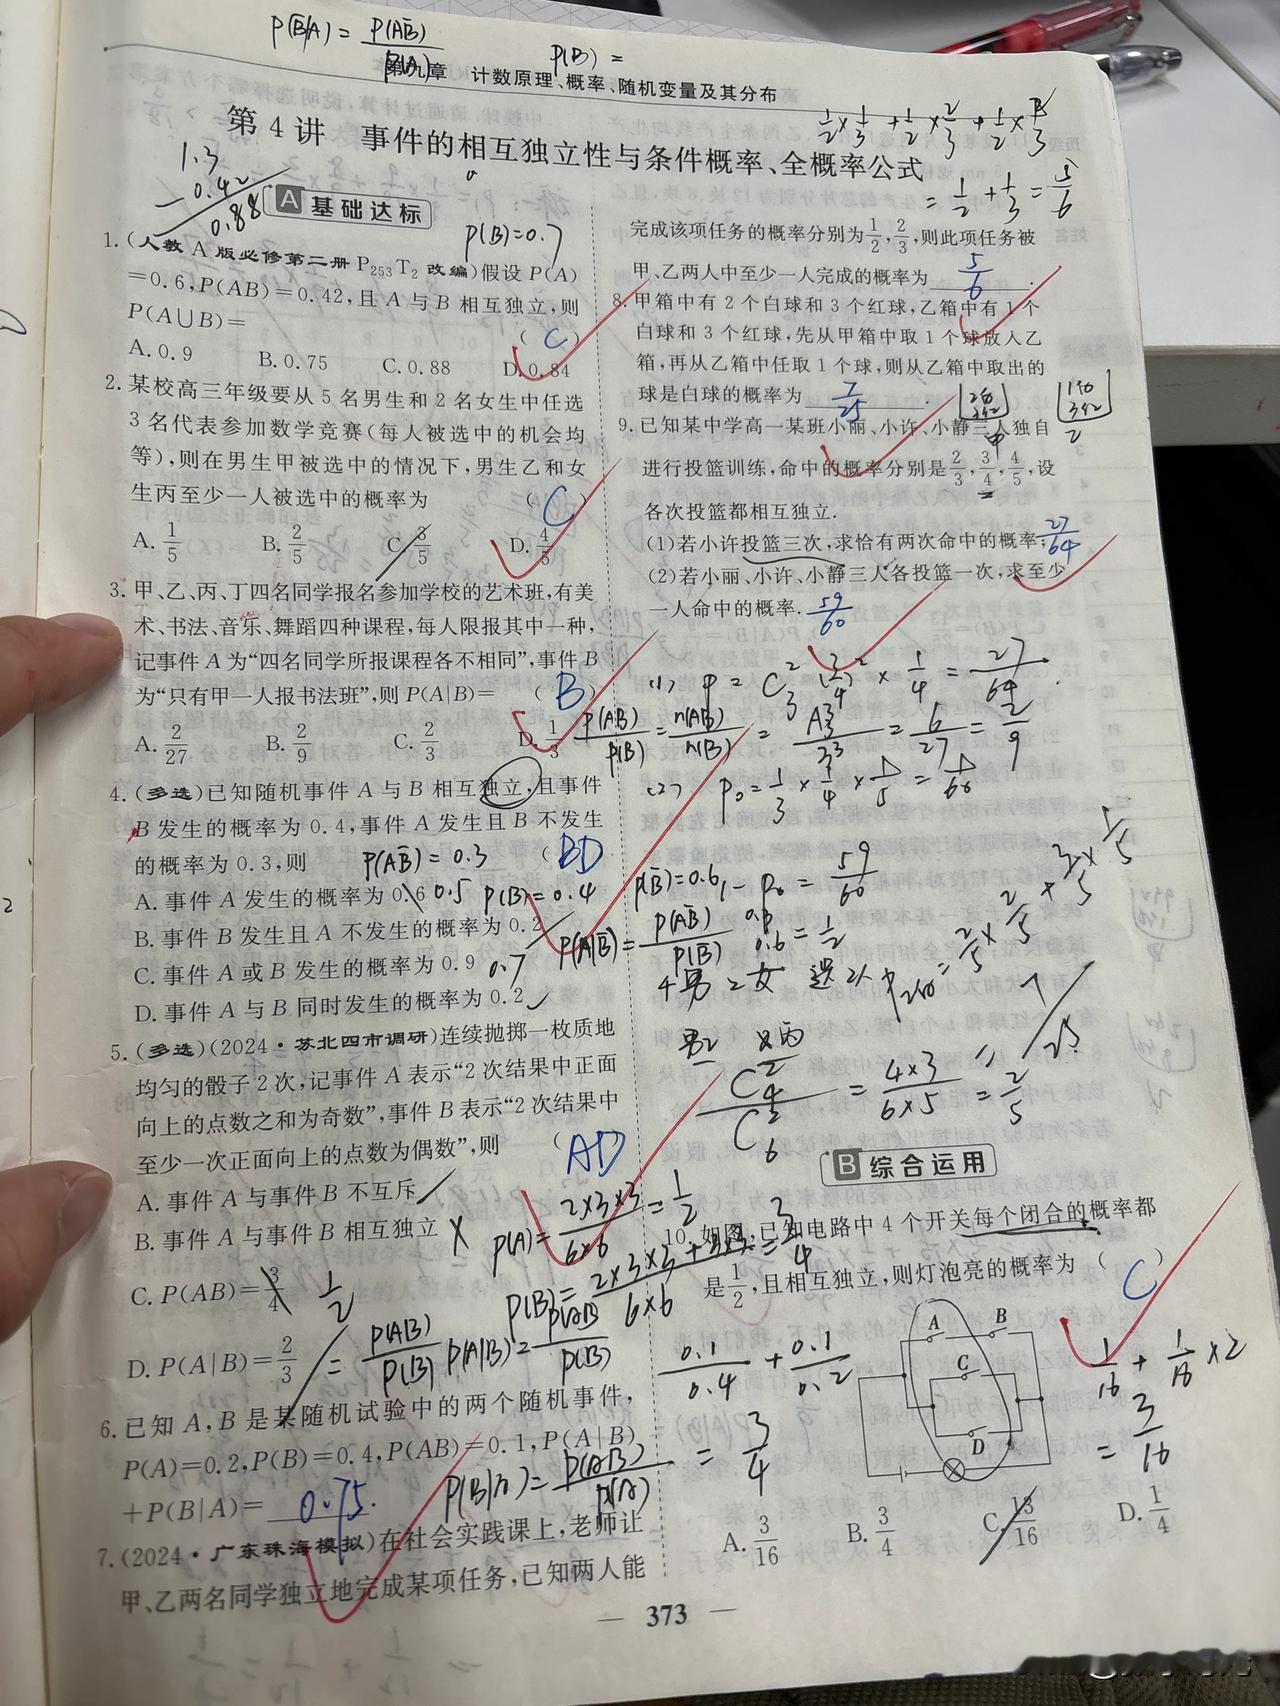 P(B̄|A) = P(AB̄)/P(A)
P(B) =
第九章 计数原理、概率、随机变量及其分布
第 4 讲 事件的相互独立性与条件概率、全概率公式
1.3
- 0.42
0.88
A 基础达标
P(B)=0.7
1.(人教 A 版必修第二册 P253 T2 改编)假设 P(A)
=0.6,P(AB)=0.42,且 A 与 B 相互独立,则
P(A∪B)= ( C )
A. 0.9 B. 0.75 C. 0.88 D. 0.84
2. 某校高三年级要从 5 名男生和 2 名女生中任选
3 名代表参加数学竞赛(每人被选中的机会均
等),则在男生甲被选中的情况下,男生乙和女
生丙至少一人被选中的概率为 ( C )
A. 1/5 B. 2/5 C. 3/5 D. 4/5
3. 甲、乙、丙、丁四名同学报名参加学校的艺术班,有美
术、书法、音乐、舞蹈四种课程,每人限报其中一种,
记事件 A 为“四名同学所报课程各不相同”,事件 B
为“只有甲一人报书法班”,则 P(A|B)= ( B )
A. 2/27 B. 2/9 C. 2/3 D. 1/3
4. (多选)已知随机事件 A 与 B 相互独立,且事件
B 发生的概率为 0.4,事件 A 发生且 B 不发生
的概率为 0.3,则 P(AB̄) = 0.3 ( BD )
A. 事件 A 发生的概率为 0.6 0.5 P(B)=0.4
B. 事件 B 发生且 A 不发生的概率为 0.2
C. 事件 A 或 B 发生的概率为 0.9 0.7
D. 事件 A 与 B 同时发生的概率为 0.2
5. (多选)(2024·苏北四市调研)连续抛掷一枚质地
均匀的骰子 2 次,记事件 A 表示“2 次结果中正面
向上的点数之和为奇数”,事件 B 表示“2 次结果中
至少一次正面向上的点数为偶数”,则 ( AD )
A. 事件 A 与事件 B 不互斥
B. 事件 A 与事件 B 相互独立 ×
P(A)= 2×3×3/6×6 = 1/2
C. P(AB)= 3/4 1/2
P(B)= 2×3×3+3×3/6×6 = 3/4
D. P(A|B)= 2/3 = P(AB)/P(B) P(A|B)= P(AB)/P(B)
6. 已知 A,B 是某随机试验中的两个随机事件,
P(A)=0.2,P(B)=0.4,P(AB)=0.1,P(A|B)
+P(B|A)= 0.75. P(B|A)= P(AB)/P(A)
7. (2024·广东珠海模拟)在社会实践课上,老师让
甲、乙两名同学独立地完成某项任务,已知两人能
1/2×1/3+1/2×2/3+1/2×2/3
= 1/2+1/3=5/6
完成该项任务的概率分别为 1/2, 2/3,则此项任务被
甲、乙两人中至少一人完成的概率为 5/6 .
8. 甲箱中有 2 个白球和 3 个红球,乙箱中有 1 个
白球和 3 个红球,先从甲箱中取 1 个球放入乙
箱,再从乙箱中任取 1 个球,则从乙箱中取出的
球是白球的概率为 7/25 .
9. 已知某中学高一某班小丽、小许、小静三人独自
进行投篮训练,命中的概率分别是 2/3, 3/4, 4/5,设
各次投篮都相互独立.
(1)若小许投篮三次,求恰有两次命中的概率; 27/64
(2)若小丽、小许、小静三人各投篮一次,求至少
一人命中的概率. 59/60
(1) P = C₃² (3/4)² × 1/4 = 27/64.
P(AB)/P(B) = n(AB)/n(B) = A₃³/3³ = 6/27 = 2/9
(2) P₀ = 1/3 × 1/4 × 1/5 = 1/60
P(B̄)=0.6 1 - P₀ = 59/60
P(A|B̄)= P(AB̄)/P(B̄) 0.3/0.6 = 1/2
4男 2女 选2人
= 2/5 × 2/5 + 3/5 × 1/5
= 7/25
C₄²/C₆² = 4×3/6×5 = 2/5
B 综合运用
10. 如图,已知电路中 4 个开关每个闭合的概率都
是 1/2,且相互独立,则灯泡亮的概率为 ( C )
A B
C
D
0.1/0.4 + 0.1/0.2
= 3/4
1/16 + 1/16 ×2
= 3/16
A. 3/16 B. 3/4 C. 13/16 D. 1/4
— 373 —